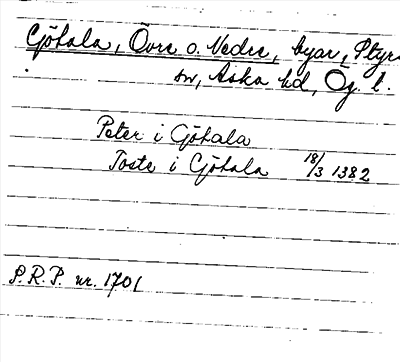 Gjötala, Övre o. Nedre, byar, Styra
sn, Aska hd, Ög. l.
Peter i Gjötala
Toste i Gjötala 18/3 1382
S.R.P. nr. 1701